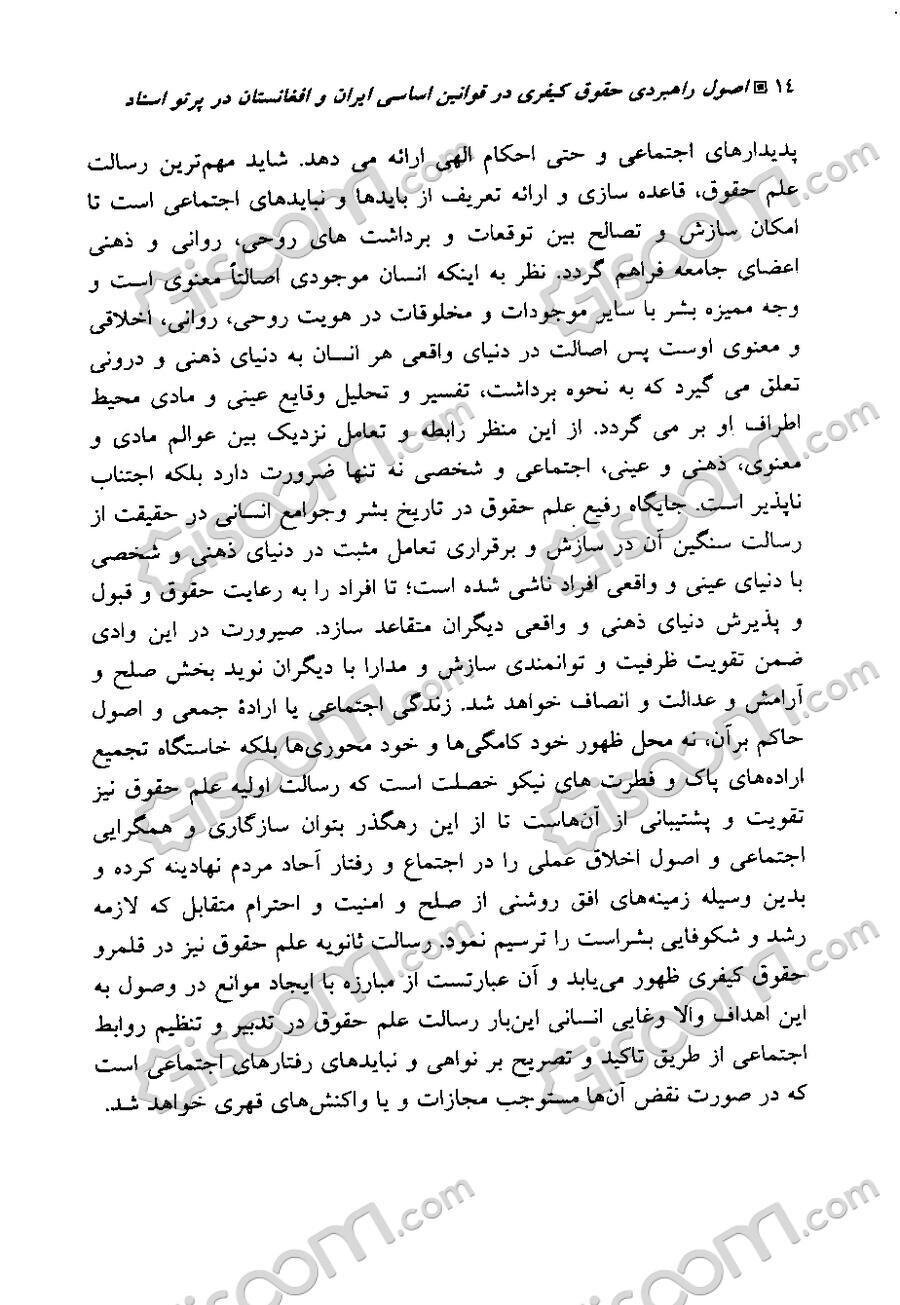 ۱٤ اصول راهبردی حقوق کیفری در قوانین اساسی ایران و افغانستان در پرتو اسناد
پدیدارهای اجتماعی و حتی احکام الهی ارائه می دهد. شاید مهم‌ترین رسالت
علم حقوق، قاعده سازی و ارائه تعریف از بایدها و نبایدهای اجتماعی است تا
امکان سازش و تصالح بین توقعات و برداشت های روحی، روانی و ذهنی
اعضای جامعه فراهم گردد. نظر به اینکه انسان موجودی اصالتاً معنوی است و
وجه ممیزه بشر با سایر موجودات و مخلوقات در هویت روحی، روانی، اخلاقی
و معنوی اوست پس اصالت در دنیای واقعی هر انسان به دنیای ذهنی و درونی
تعلق می گیرد که به نحوه برداشت، تفسیر و تحلیل وقایع عینی و مادی محیط
اطراف او بر می گردد. از این منظر رابطه و تعامل نزدیک بین عوالم مادی و
معنوی، ذهنی و عینی، اجتماعی و شخصی نه تنها ضرورت دارد بلکه اجتناب
ناپذیر است. جایگاه رفیع علم حقوق در تاریخ بشر وجوامع انسانی در حقیقت از
رسالت سنگین آن در سازش و برقراری تعامل مثبت در دنیای ذهنی و شخصی
با دنیای عینی و واقعی افراد ناشی شده است؛ تا افراد را به رعایت حقوق و قبول
و پذیرش دنیای ذهنی و واقعی دیگران متقاعد سازد. صیرورت در این وادی
ضمن تقویت ظرفیت و توانمندی سازش و مدارا با دیگران نوید بخش صلح و
آرامش و عدالت و انصاف خواهد شد. زندگی اجتماعی یا ارادهٔ جمعی و اصول
حاکم برآن، نه محل ظهور خود کامگی‌ها و خود محوری‌ها بلکه خاستگاه تجمیع
اراده‌های پاک و فطرت های نیکو خصلت است که رسالت اولیه علم حقوق نیز
تقویت و پشتیبانی از آن‌هاست تا از این رهگذر بتوان سازگاری و همگرایی
اجتماعی و اصول اخلاق عملی را در اجتماع و رفتار آحاد مردم نهادینه کرده و
بدین وسیله زمینه‌های افق روشنی از صلح و امنیت و احترام متقابل که لازمه
رشد و شکوفایی بشراست را ترسیم نمود. رسالت ثانویه علم حقوق نیز در قلمرو
حقوق کیفری ظهور می‌یابد و آن عبارتست از مبارزه با ایجاد موانع در وصول به
این اهداف والا وغایی انسانی این‌بار رسالت علم حقوق در تدبیر و تنظیم روابط
اجتماعی از طریق تاکید و تصریح بر نواهی و نبایدهای رفتارهای اجتماعی است
که در صورت نقض آن‌ها مستوجب مجازات و یا واکنش‌های قهری خواهد شد.
Giscom.com